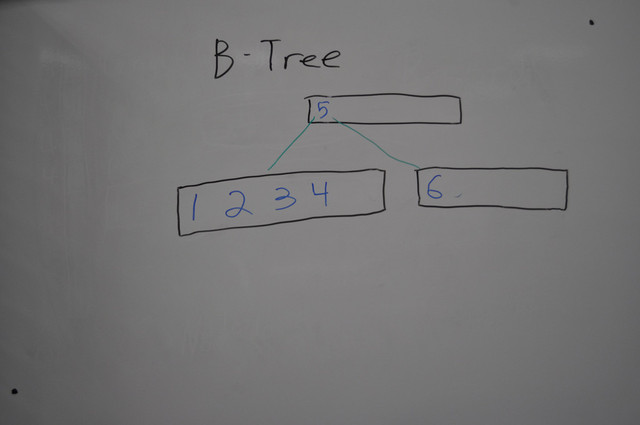 B-Tree
5
1 2 3 4 6